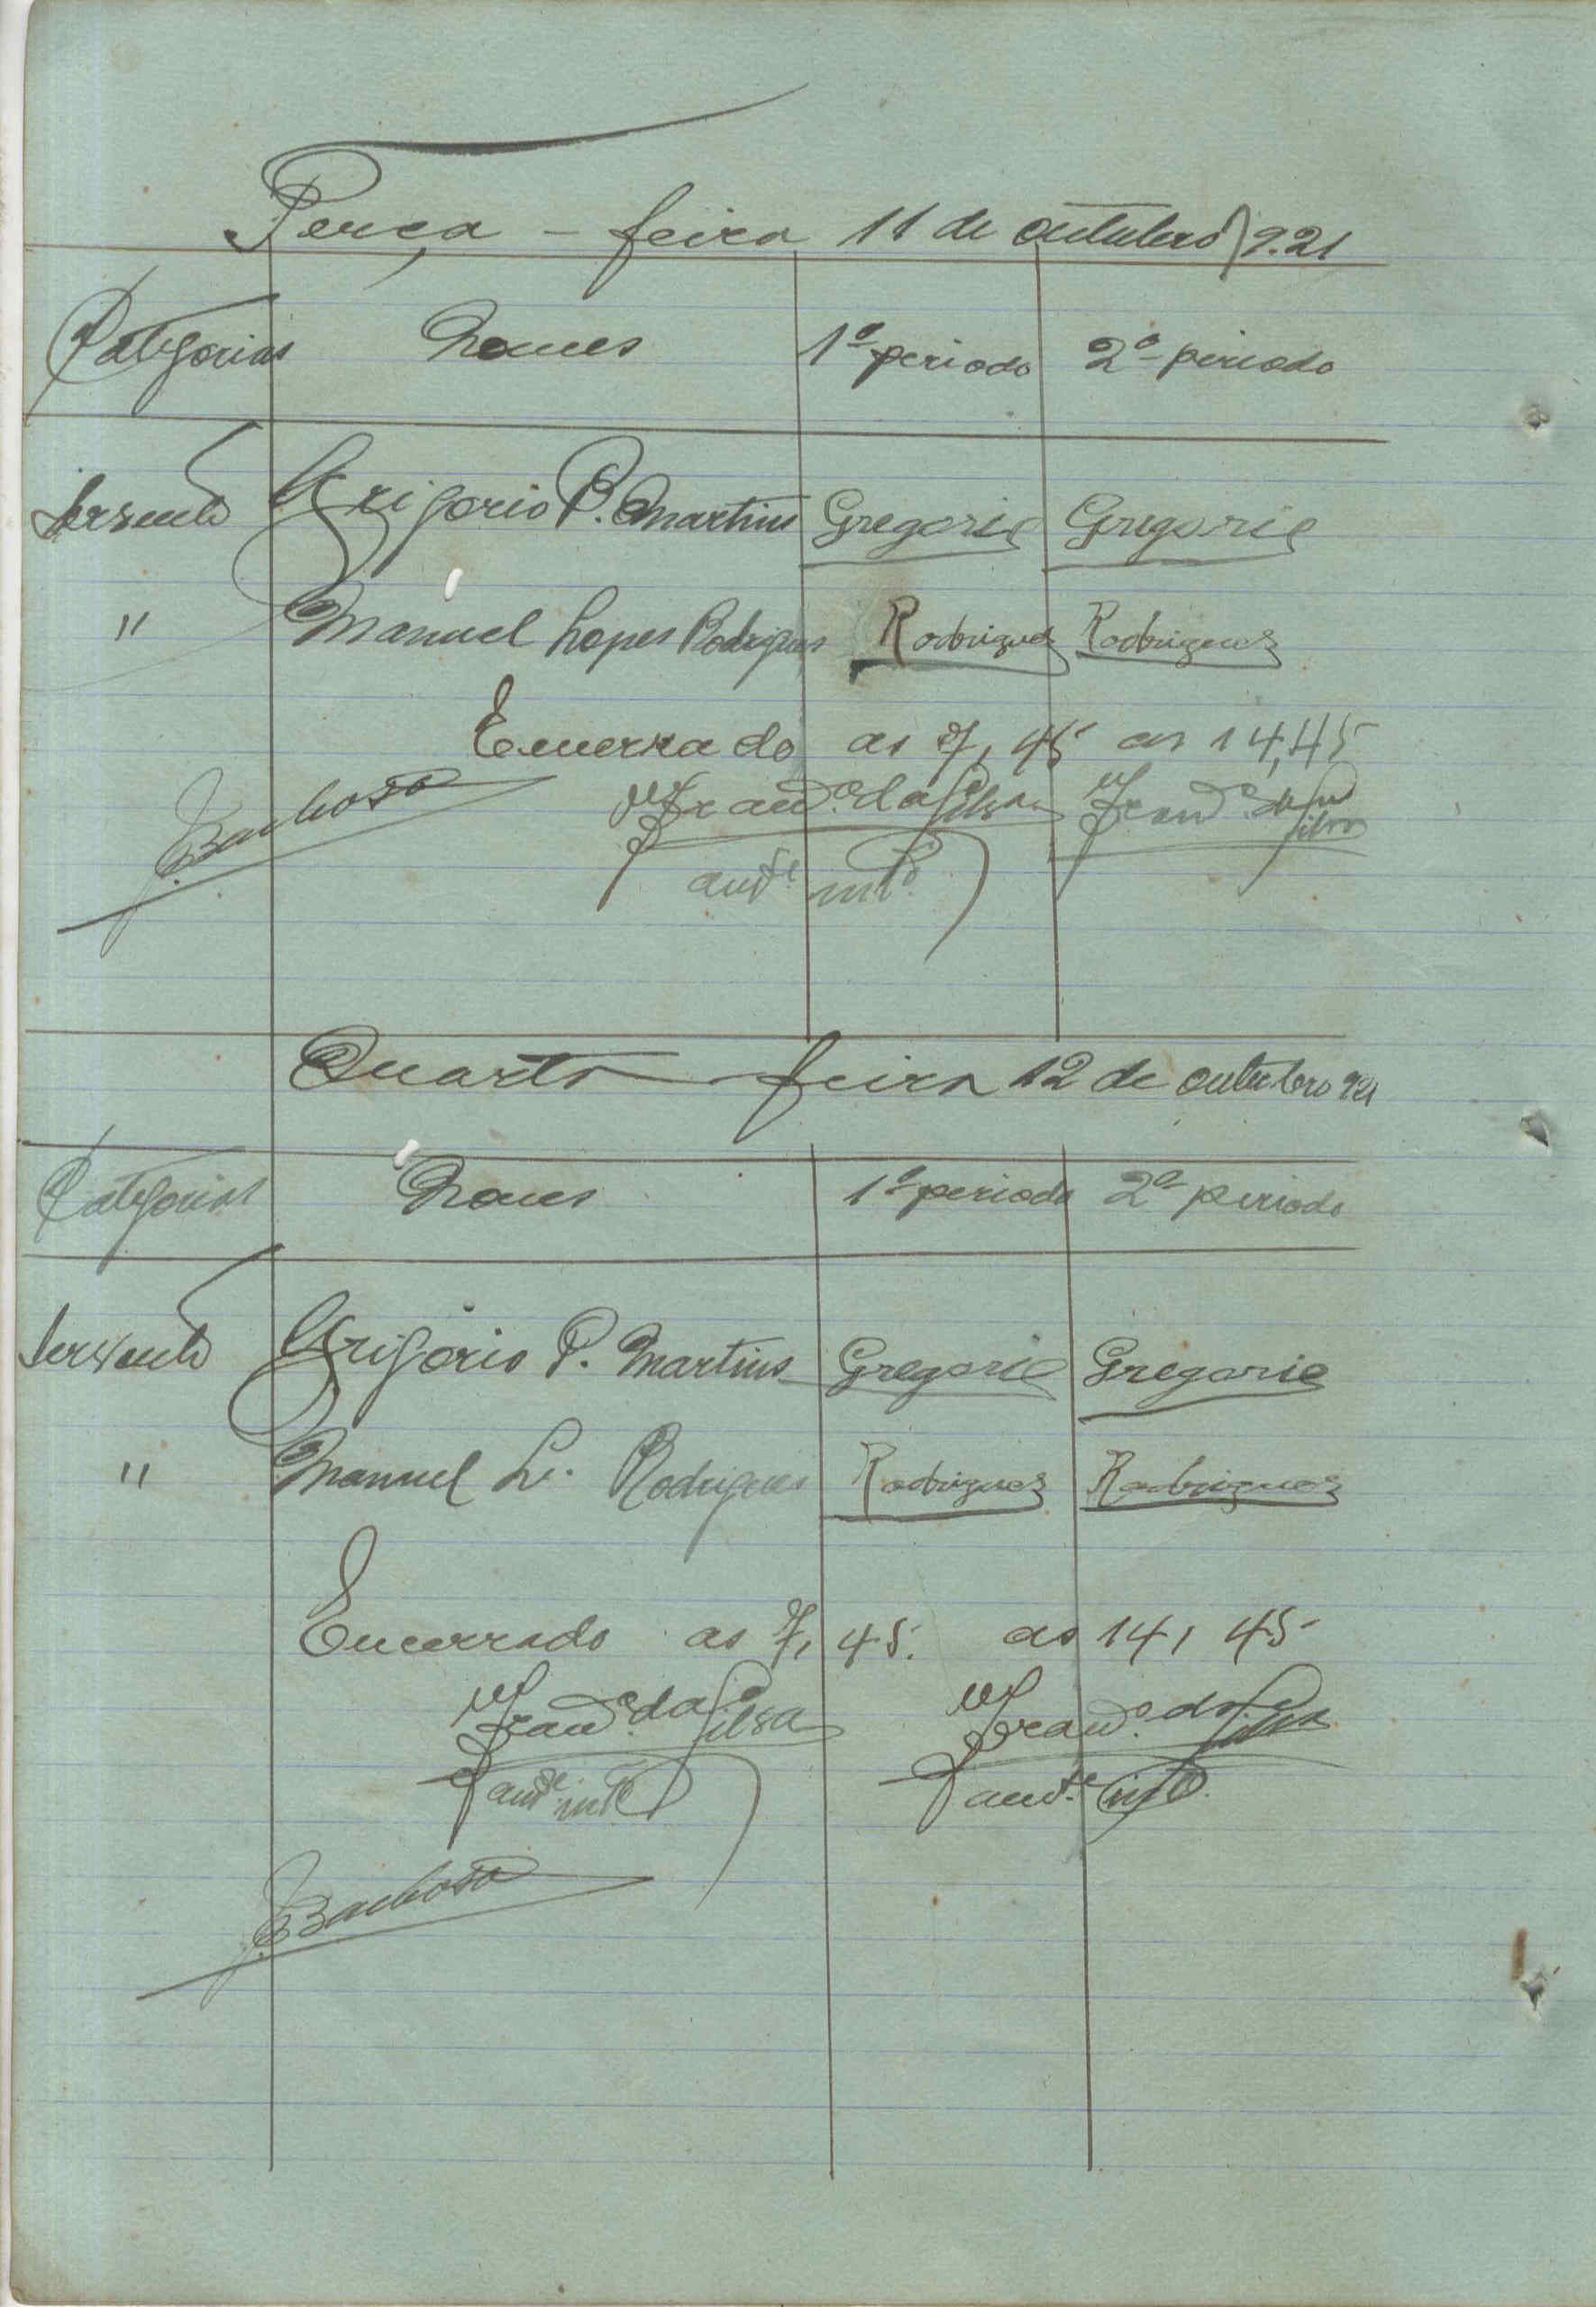 Terça - feira 11 de outubro 921
Categorias Nomes 1º periodo 2º periodo
Servente Grigorio P. Martins Gregorio Gregorio
" Manuel Lopes Rodrigues Rodrigues Rodrigues
Encerrado as 7,45 as 14,45
J. Barbosa da Silva Silva
Quarta feira 12 de outubro 921
Categorias Nomes 1º periodo 2º periodo
Servente Grigorio P. Martins Gregorio Gregorio
" Manuel L. Rodrigues Rodrigues Rodrigues
Encerrado as 7,45. as 14,45
da Silva da Silva
J. Barbosa